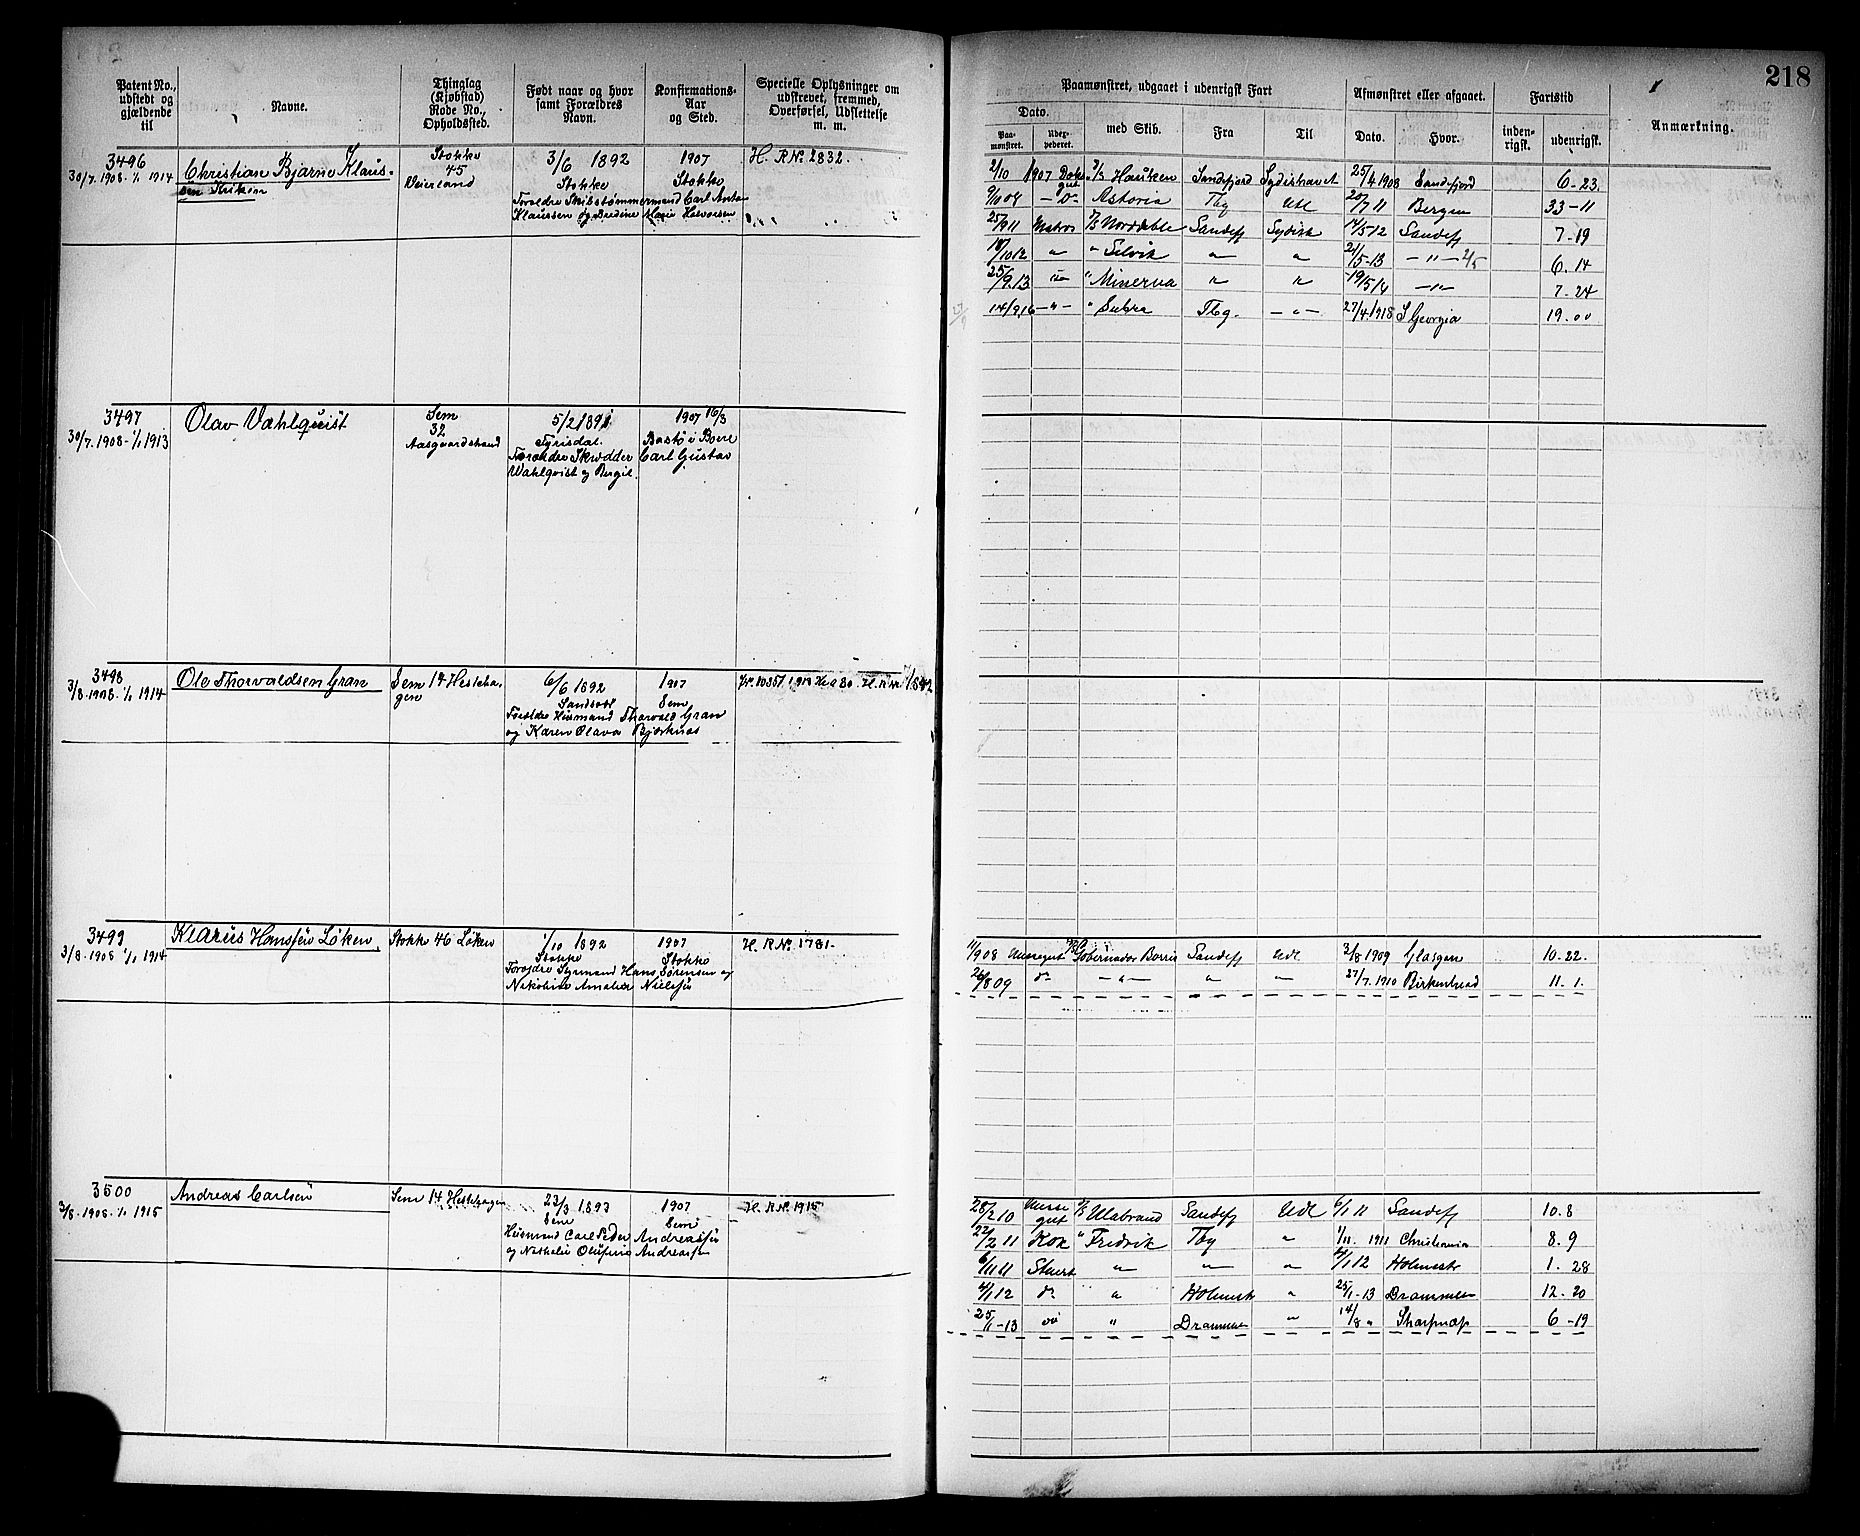 218
Patent No., udstedt og gjældende til
Navne.
Thinglag (Kjøbstad) Rode No., Opholdssted.
Født naar og hvor samt Forældres Navn.
Konfirmations-Aar og Sted.
Specielle Oplysninger om udstrevet, fremmed, Overførsel, Udslettelse m. m.
Paamønstret, udgaaet i udenrigsk Fart
Afmønstret eller afgaaet.
Fartstid
Anmærkning.
Dato.
Paa-mønstret.
med Skib.
Fra
Til
Dato.
Hvor.
inden-rigsk.
udenrigsk.
3496
30/7. 1908 - 1/1 1914
Christian Bjarne Klaus-
sen
Stokke
45
Veierland
3/6 1892
Stokke
Forældre Skibstømmermand Carl Anton
Klaussen og Bredine Marie
1907
Stokke
H. R No. 2832.
2/10 1907 Sandefjord Sydishavet 25/4 1908 Sandefjord 6-23
9/10 08 - Do - Astoria Tbg Udl 20/7 11 Bergen 33-11
25/9 11 Matros Sandefj Sydish 14/5 12 Sandefj 7-19
10 12 " " Selvik " " 21/5-13 - " - 6.14
25/9.13 " " Minerva " " 19/5 14 - " - 7-24
14/9 16 - " - " Tbg. - " - 27/4.1918 S Georgia 19.00
3497
30/7.1908 - 1/1 1913
Olav Wahlquist
Sem
32
Aasgaardstrand
5/2 1891
Fyrisdal.
Forældre Skrædder Carl Gustav
Wahlqvist og Bergit.
1907 16/3
Bastø i Borre
3498
3/8.1908 - 1/1 1914
Ole Thorvaldsen Gran
Sem 14 Hesteha-
gen
6/6 1892
Forældre Husmand Thorvald Gran
og Karen Olava Bjørknes
1907
Sem
3499
3/8.1908 1/1 1914
Klarius Hanssen Løken
Stokke 46 Løken
1/10 1892
Stokke
Forældre Styrmand Hans Sørensen og
Nikoline Amalie Nielsen
1907
Stokke
H. R No. 1781.
Gobernador Borries Sandefj Udl 3/8 1909 Glasgow 10.22.
26/8 09 do - " - " " 27/7.1910 Birkenhead 11.1.
3500
3/8.1908 - 1/1 1915
Andreas Carlsen
Sem 14 Hestehagen
23/3 1893
Sem
Husmand Carl Peder Andreassen
og Andreassen
1907
Sem
H. R No. 1915
28/2 10 Messe gut Ulabrand Sandefj Udl 6/1 11 Sandefj 10.8
22/2 11 Kok " Fredvik Tbg " 1/11. 1911 Christiania 8.9
6/11 11 Stuert " - " - " 4/1 12 Holmestr 1.28
4/1 12 do " Holmestr " 25/1-13 Drammen 12-20
25/1-13 " Drammen " 14/8 " Sharpnæs 6-19